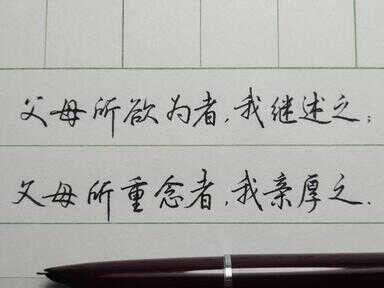 父母所欲为者，我继述之；
父母所重念者，我亲厚之．